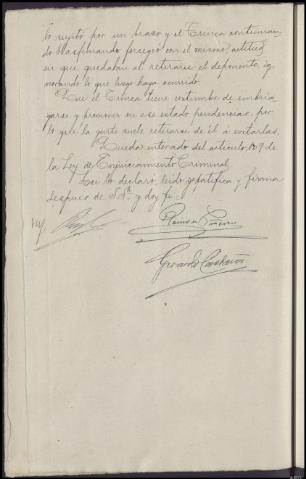 lo sujetó por un brazo y el Eneca continuan-
do blasfemando forcejeó con el mismo, actitud
en que quedaban al retirarse el deponente, ig-
norando lo que luego haya ocurrido.
Que el Eneca tiene costumbre de embria-
garse y promover en ese estado pendencias, por
lo que la gente suele retirarse de él a evitarlas.
Quedar enterado del artículo 109 de
la Ley de Enjuiciamiento Criminal.
Así lo declaró, leído se ratifica y firma
despues de S.Sª. y doy fé.
Ramon
Gerardo